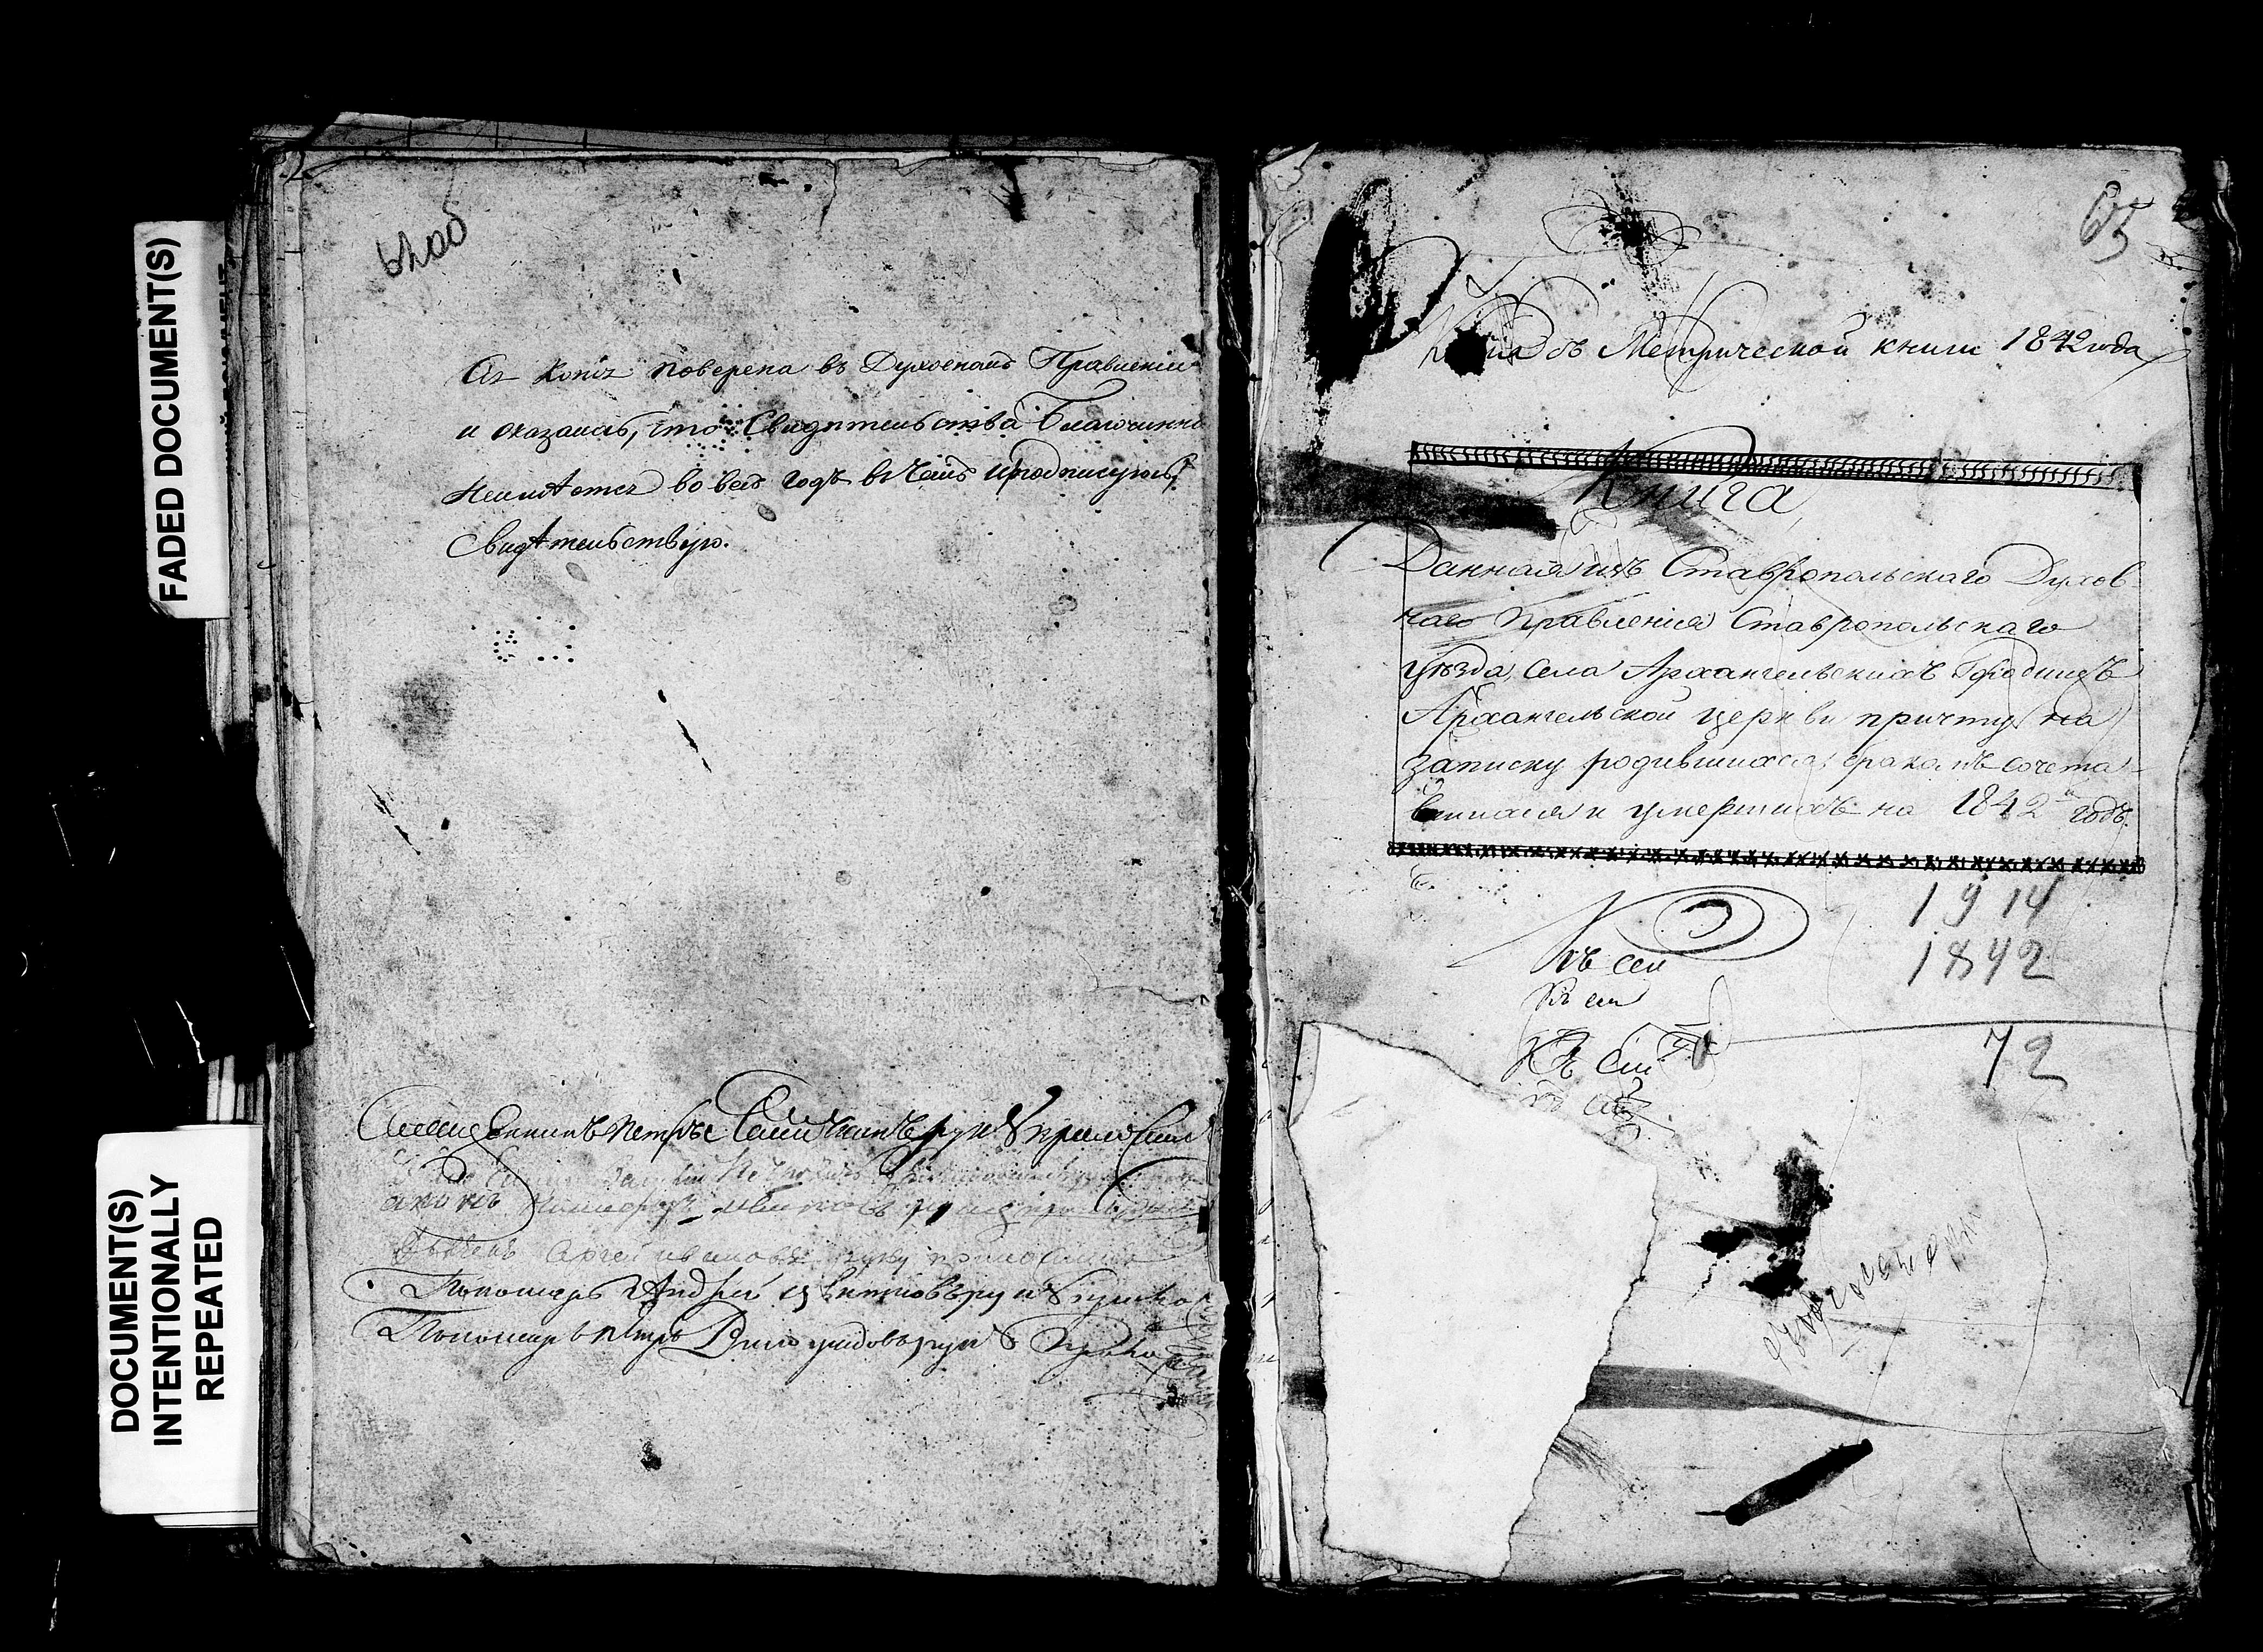 FADED DOCUMENT(S)
DOCUMENT(S)
INTENTIONALLY
REPEATED
64 об
Сія копія поверена въ Духовномъ Правленіи
и оказалась, что Свидѣтельства Благочинно
неимѣется во весь годъ въ чемъ и подписуюсь
Свидѣтельствую.
Священникъ Петръ руку приложилъ
руку
Дьячекъ Сергей Ивановъ руку приложилъ
Пономарь Андрей Цветковъ руку приложи
Пономарь Петръ Виноградовъ руку прило
65
Копія съ Метрической книги 1842 года
Книга
Данная изъ Ставропольскаго Духов
наго Правленія Ставропольскаго
уѣзда села Архангельскихъ Городищъ
Архангельской церкви причту на
записку родившихся, бракомъ сочета-
вшихся и умершихъ на 1842й годъ.
1914
1842
72
Къ сей
Къ сей
Къ сей